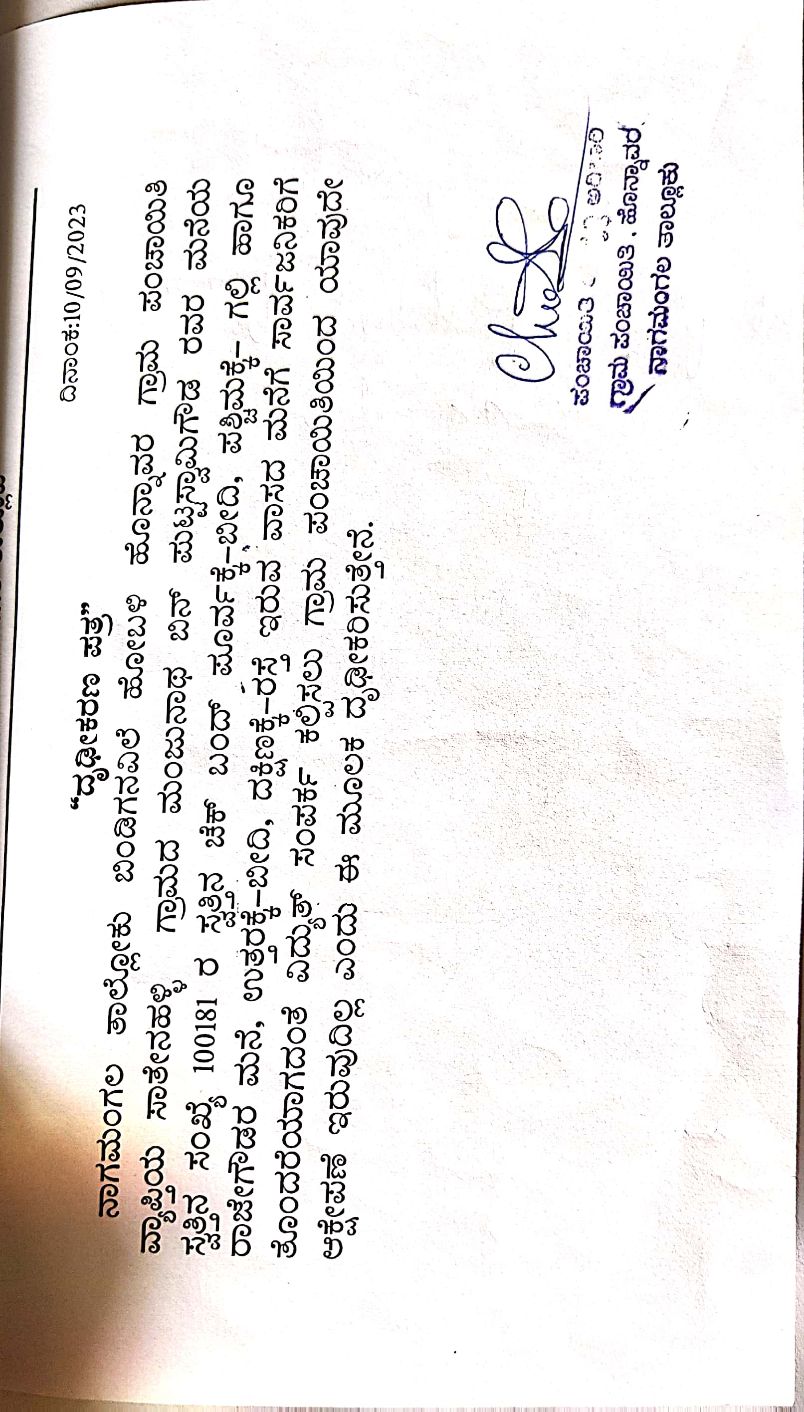 ದಿನಾಂಕ:10/09/2023
“ದೃಢೀಕರಣ ಪತ್ರ”
ನಾಗಮಂಗಲ ತಾಲ್ಲೋಕು ಬಿಂಡಿಗನವಿಲೆ ಹೋಬಳಿ ಹೊನ್ನಾವರ ಗ್ರಾಮ ಪಂಚಾಯಿತಿ
ವ್ಯಾಪ್ತಿಯ ಸಾತೇನಹಳ್ಳಿ ಗ್ರಾಮದ ಮಂಜುನಾಥ ಬಿನ್ ಪುಟ್ಟಸ್ವಾಮಿಗೌಡ ರವರ ಮನೆಯ
ಸ್ವತ್ತಿನ ಸಂಖ್ಯೆ 100181 ರ ಸ್ವತ್ತಿನ ಚೆಕ್ ಬಂದ್ ಪೂರ್ವಕ್ಕೆ-ಬೀದಿ, ಪಶ್ಚಿಮಕ್ಕೆ- ಗಲ್ಲಿ ಹಾಗೂ
ರಾಜೇಗೌಡರ ಮನೆ, ಉತ್ತರಕ್ಕೆ-ಬೀದಿ, ದಕ್ಷಿಣಕ್ಕೆ-ರಸ್ತೆ ಇರುವ ವಾಸದ ಮನೆಗೆ ಸಾರ್ವಜನಿಕರಿಗೆ
ತೊಂದರೆಯಾಗದಂತೆ ವಿದ್ಯುತ್ ಸಂಪರ್ಕ ಕಲ್ಪಿಸಲು ಗ್ರಾಮ ಪಂಚಾಯಿತಿಯಿಂದ ಯಾವುದೇ
ಆಕ್ಷೇಪಣೆ ಇರುವುದಿಲ್ಲ ಎಂದು ಈ ಮೂಲಕ ದೃಢೀಕರಿಸುತ್ತೇನೆ.
ಪಂಚಾಯಿತಿ
ಗ್ರಾಮ ಪಂಚಾಯಿತಿ, ಹೊನ್ನಾವರ,
ನಾಗಮಂಗಲ ತಾಲ್ಲೂಕು